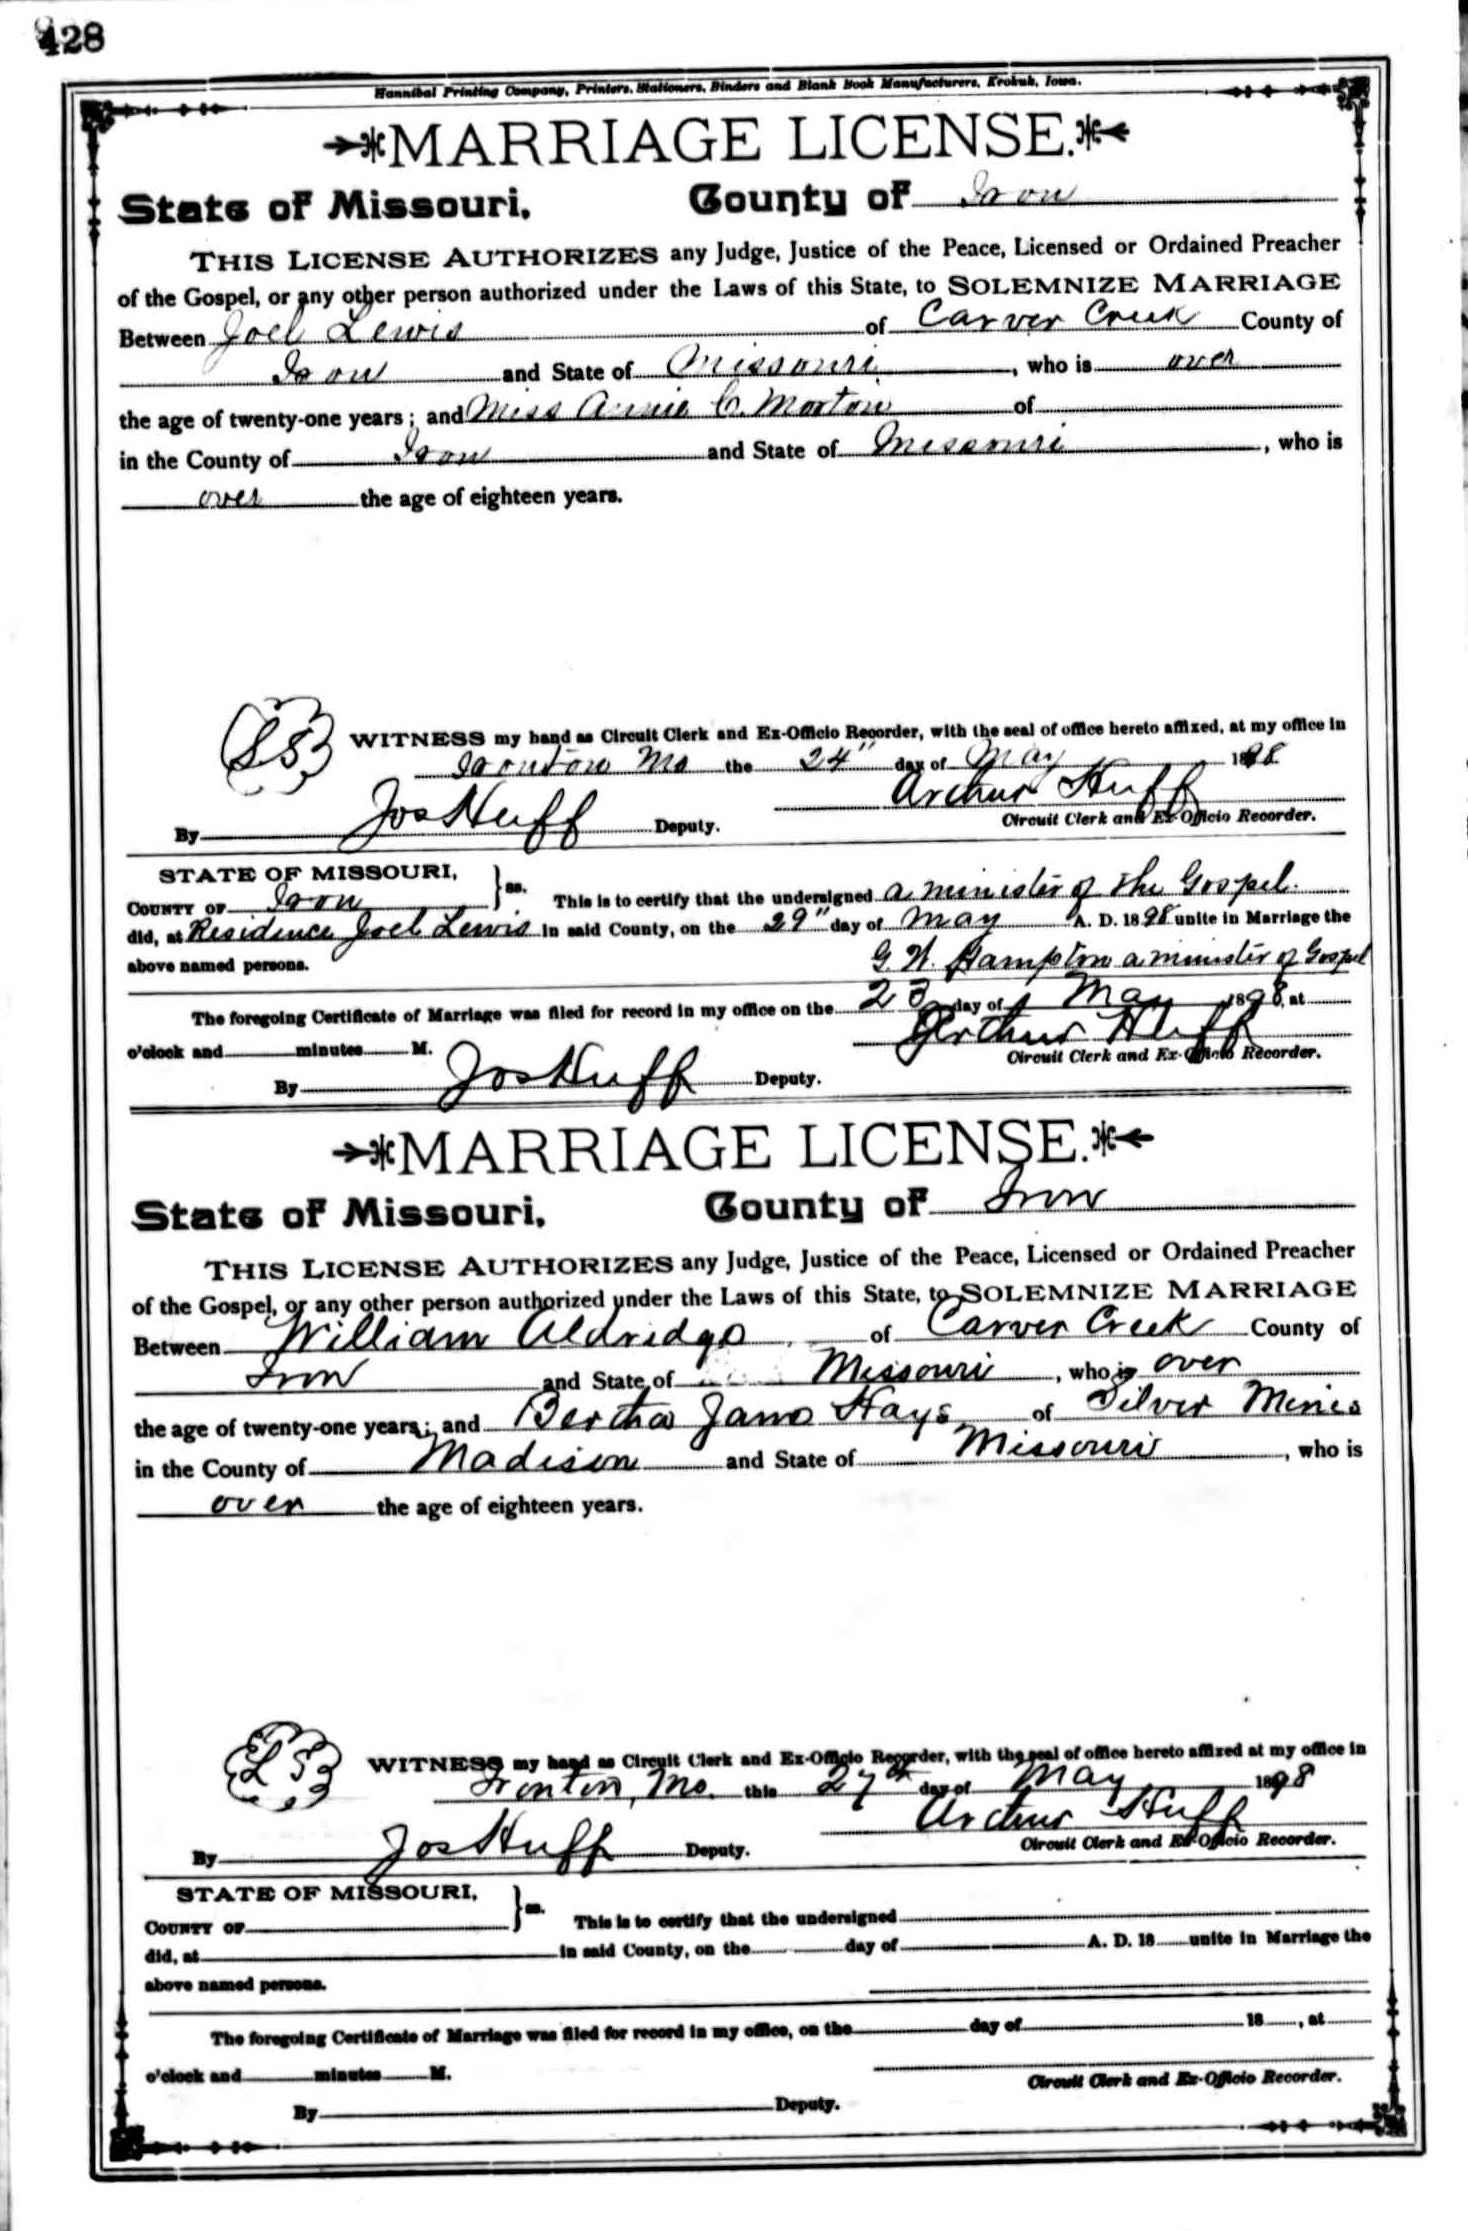 428
Hannibal Printing Company, Printers, Stationers, Binders and Blank Book Manufacturers, Keokuk, Iowa.
MARRIAGE LICENSE.
State of Missouri, County of Iron
THIS LICENSE AUTHORIZES any Judge, Justice of the Peace, Licensed or Ordained Preacher
of the Gospel, or any other person authorized under the Laws of this State, to SOLEMNIZE MARRIAGE
Between Joel Lewis of Carver Creek County of
Iron and State of Missouri, who is over
the age of twenty-one years; and Miss Annie C. Morton of
in the County of Iron and State of Missouri, who is
over the age of eighteen years.
WITNESS my hand as Circuit Clerk and Ex-Officio Recorder, with the seal of office hereto affixed, at my office in
Ironton Mo the 24" day of May 1898
Arthur Huff
By Jos Huff Deputy. Circuit Clerk and Ex-Officio Recorder.
STATE OF MISSOURI,
COUNTY OF Iron } ss. This is to certify that the undersigned a minister of the Gospel.
did, at Residence Joel Lewis in said County, on the 29" day of May A. D. 1898 unite in Marriage the
above named persons. G. W. Hampton a minister of Gospel
The foregoing Certificate of Marriage was filed for record in my office on the 23 day of May 1898, at
o'clock and minutes M. Arthur Huff
Circuit Clerk and Ex-Officio Recorder.
By Jos Huff Deputy.
MARRIAGE LICENSE.
State of Missouri, County of Iron
THIS LICENSE AUTHORIZES any Judge, Justice of the Peace, Licensed or Ordained Preacher
of the Gospel, or any other person authorized under the Laws of this State, to SOLEMNIZE MARRIAGE
Between William Aldridge of Carver Creek County of
Iron and State of Missouri, who is over
the age of twenty-one years; and Bertha Jane Hays of Silver Mines
in the County of Madison and State of Missouri, who is
over the age of eighteen years.
LS WITNESS my hand as Circuit Clerk and Ex-Officio Recorder, with the seal of office hereto affixed at my office in
Ironton, Mo. this 27th day of May 1898
Arthur Huff
By Jos Huff Deputy. Circuit Clerk and Ex-Officio Recorder.
STATE OF MISSOURI,
COUNTY OF } ss. This is to certify that the undersigned
did, at in said County, on the day of A. D. 18 unite in Marriage the
above named persons.
The foregoing Certificate of Marriage was filed for record in my office, on the day of 18 , at
o'clock and minutes M.
Circuit Clerk and Ex-Officio Recorder.
By Deputy.